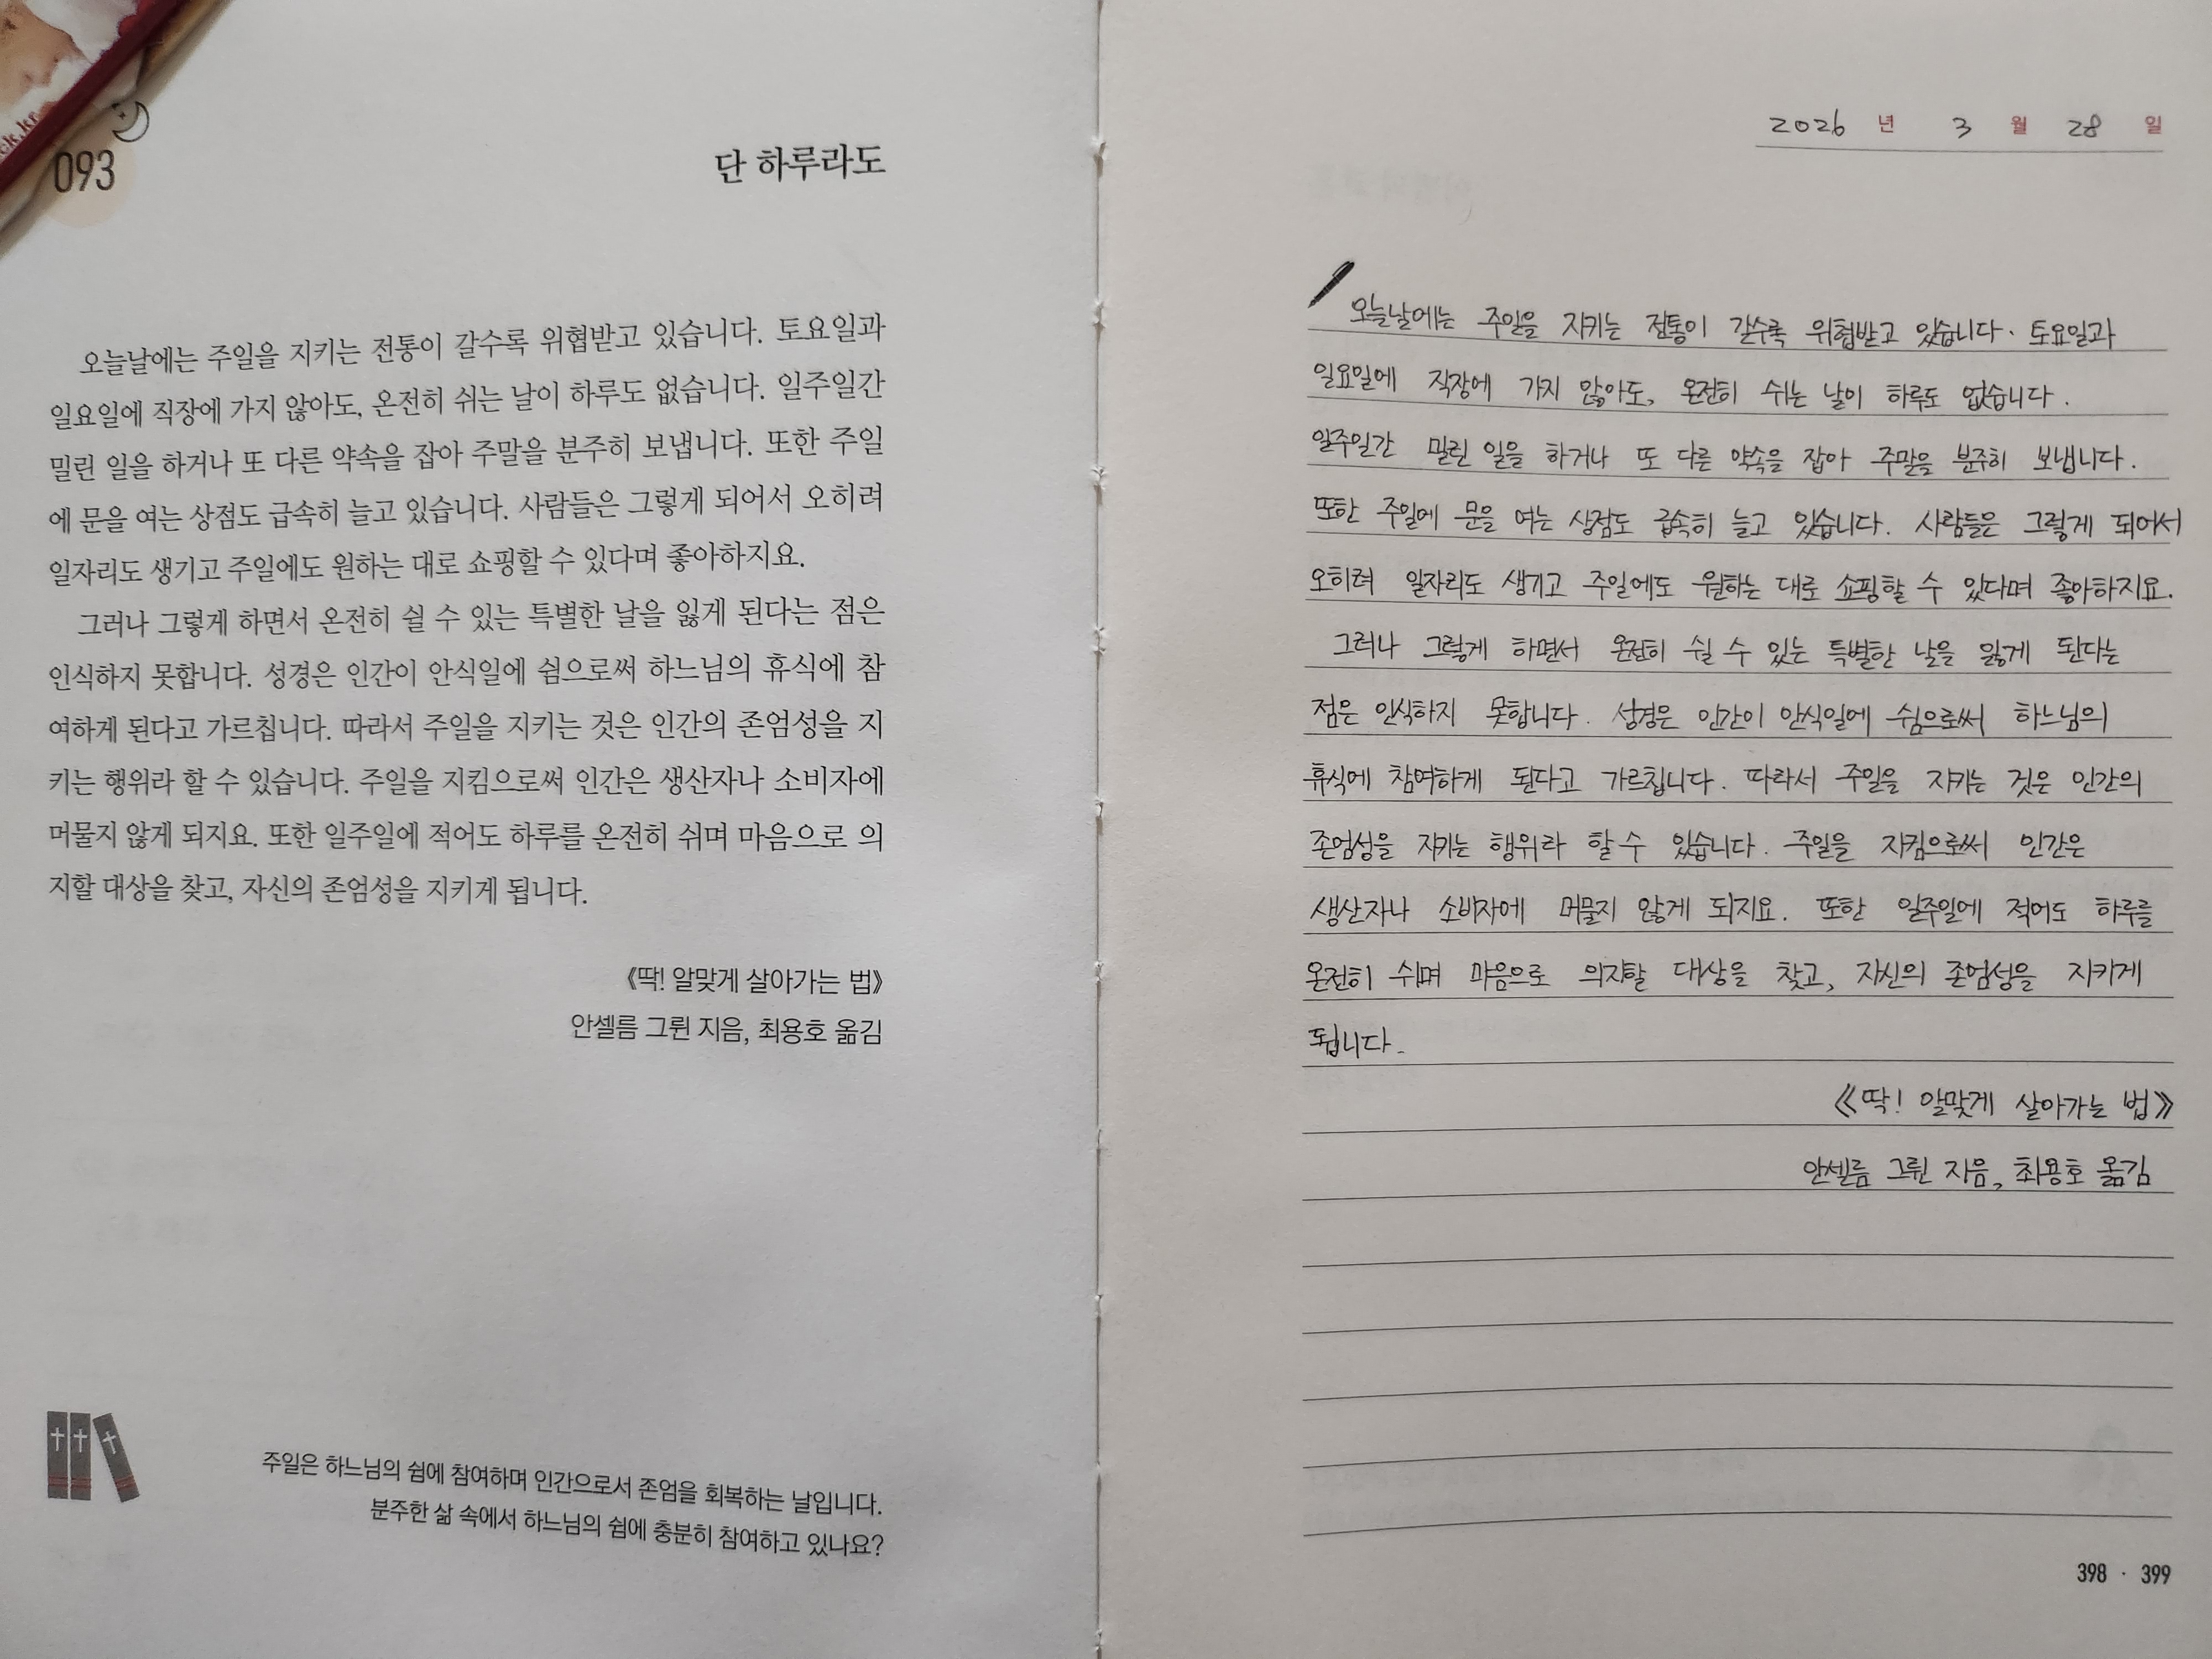 ck.kr
093
단 하루라도
오늘날에는 주일을 지키는 전통이 갈수록 위협받고 있습니다. 토요일과
일요일에 직장에 가지 않아도, 온전히 쉬는 날이 하루도 없습니다. 일주일간
밀린 일을 하거나 또 다른 약속을 잡아 주말을 분주히 보냅니다. 또한 주일
에 문을 여는 상점도 급속히 늘고 있습니다. 사람들은 그렇게 되어서 오히려
일자리도 생기고 주일에도 원하는 대로 쇼핑할 수 있다며 좋아하지요.
그러나 그렇게 하면서 온전히 쉴 수 있는 특별한 날을 잃게 된다는 점은
인식하지 못합니다. 성경은 인간이 안식일에 쉼으로써 하느님의 휴식에 참
여하게 된다고 가르칩니다. 따라서 주일을 지키는 것은 인간의 존엄성을 지
키는 행위라 할 수 있습니다. 주일을 지킴으로써 인간은 생산자나 소비자에
머물지 않게 되지요. 또한 일주일에 적어도 하루를 온전히 쉬며 마음으로 의
지할 대상을 찾고, 자신의 존엄성을 지키게 됩니다.
《딱! 알맞게 살아가는 법》
안셀름 그륀 지음, 최용호 옮김
주일은 하느님의 쉼에 참여하며 인간으로서 존엄을 회복하는 날입니다.
분주한 삶 속에서 하느님의 쉼에 충분히 참여하고 있나요?
2026 년 3 월 28 일
오늘날에는 주일을 지키는 전통이 갈수록 위협받고 있습니다. 토요일과
일요일에 직장에 가지 않아도, 온전히 쉬는 날이 하루도 없습니다.
일주일간 밀린 일을 하거나 또 다른 약속을 잡아 주말을 분주히 보냅니다.
또한 주일에 문을 여는 상점도 급속히 늘고 있습니다. 사람들은 그렇게 되어서
오히려 일자리도 생기고 주일에도 원하는 대로 쇼핑할 수 있다며 좋아하지요.
그러나 그렇게 하면서 온전히 쉴 수 있는 특별한 날을 잃게 된다는
점은 인식하지 못합니다. 성경은 인간이 안식일에 쉼으로써 하느님의
휴식에 참여하게 된다고 가르칩니다. 따라서 주일을 지키는 것은 인간의
존엄성을 지키는 행위라 할 수 있습니다. 주일을 지킴으로써 인간은
생산자나 소비자에 머물지 않게 되지요. 또한 일주일에 적어도 하루를
온전히 쉬며 마음으로 의지할 대상을 찾고, 자신의 존엄성을 지키게
됩니다.
《딱! 알맞게 살아가는 법》
안셀름 그륀 지음, 최용호 옮김
398 · 399